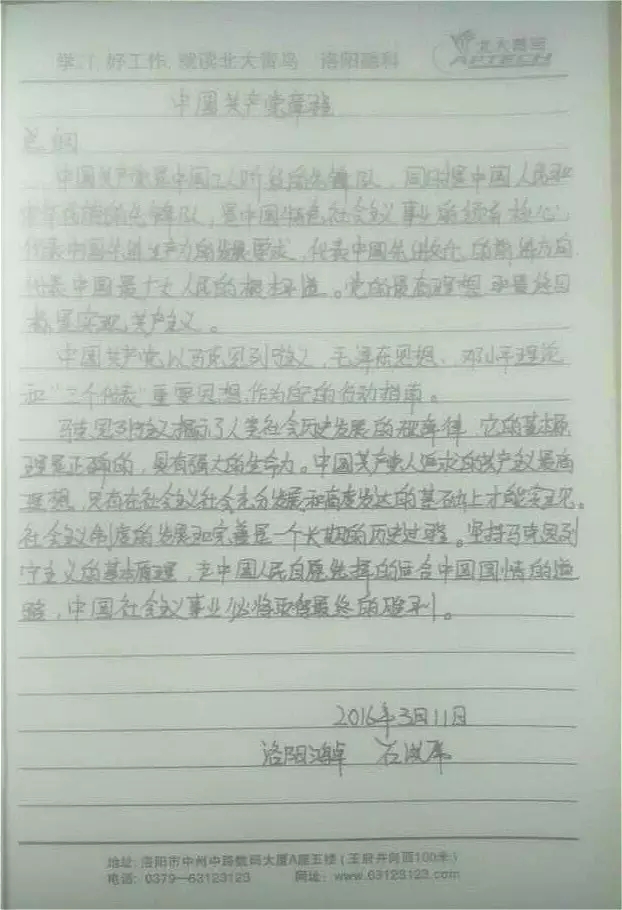 学IT,好工作,就读北大青鸟 洛阳融科
北大青鸟
APTECH
中国共产党章程
总纲
中国共产党是中国工人阶级的先锋队,同时是中国人民和
中华民族的先锋队,是中国特色社会主义事业的领导核心,
代表中国先进生产力的发展要求,代表中国先进文化的前进方向
代表中国最广大人民的根本利益。党的最高理想和最终目
标是实现共产主义。
中国共产党以马克思列宁主义、毛泽东思想、邓小平理论
和“三个代表”重要思想作为自己的行动指南。
马克思列宁主义揭示了人类社会历史发展的规律,它的基本原
理是正确的,具有强大的生命力。中国共产党人追求的共产主义最高
理想,只有在社会主义社会充分发展和高度发达的基础上才能实现。
社会主义制度的发展和完善是一个长期的历史过程。坚持马克思列
宁主义的基本原理,走中国人民自愿选择的适合中国国情的道
路,中国社会主义事业必将取得最终的胜利。
2016年3月11日
洛阳鸿卓 石
地址:洛阳市中州中路数码大厦A座五楼(王府井向西100米)
电话:0379—63123123 网址:www.63123123.com